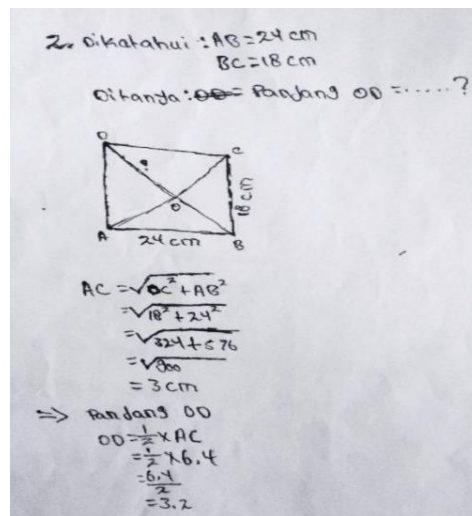 2. Dikatahui : AB = 24 cm
BC = 18 cm
Ditanya : Panjang OD = ..... ?
D
C
?
O
18 cm
A
24 cm
B
AC = √BC² + AB²
= √18² + 24²
= √324 + 576
= √900
= 3 cm
=> Pandang OD
OD = 1/2 × AC
= 1/2 × 6.4
= 6.4/2
= 3.2